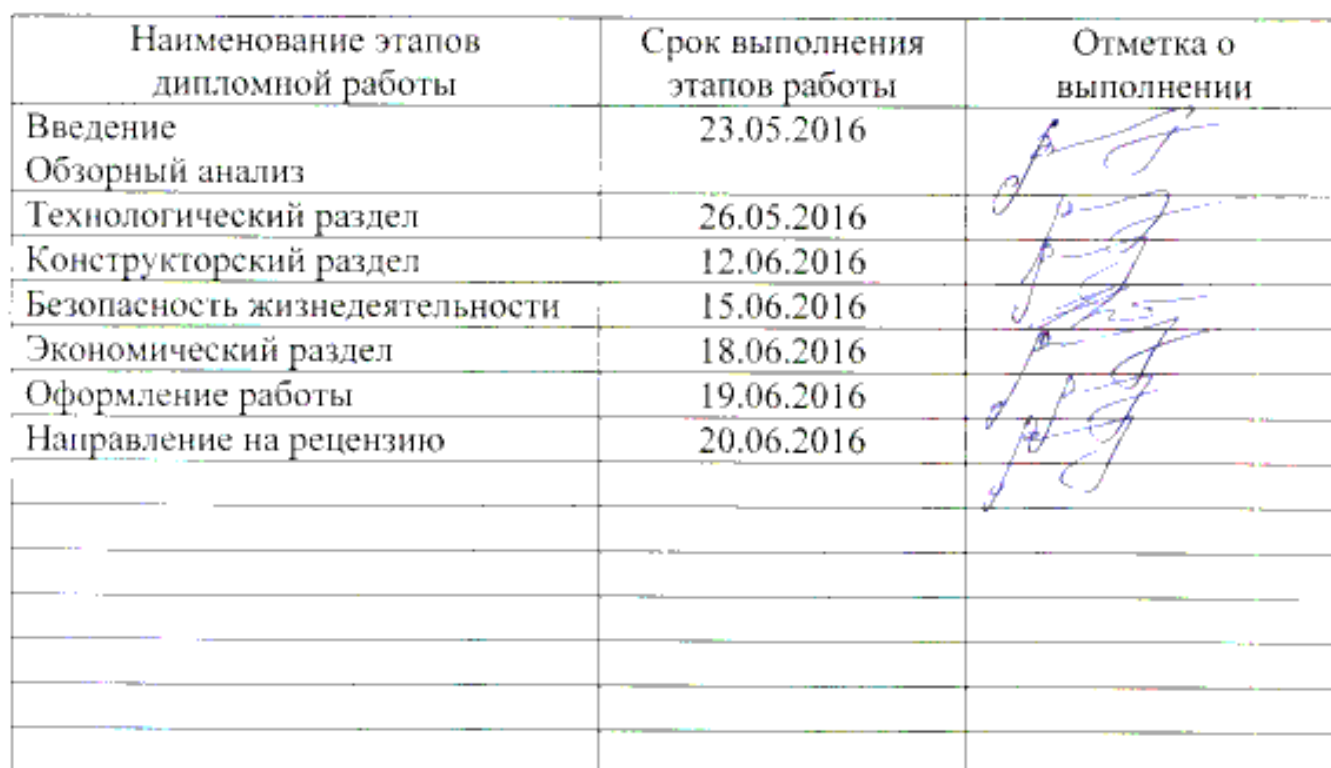 Наименование этапов дипломной работы Срок выполнения этапов работы Отметка о выполнении
Введение 23.05.2016
Обзорный анализ
Технологический раздел 26.05.2016
Конструкторский раздел 12.06.2016
Безопасность жизнедеятельности 15.06.2016
Экономический раздел 18.06.2016
Оформление работы 19.06.2016
Направление на рецензию 20.06.2016